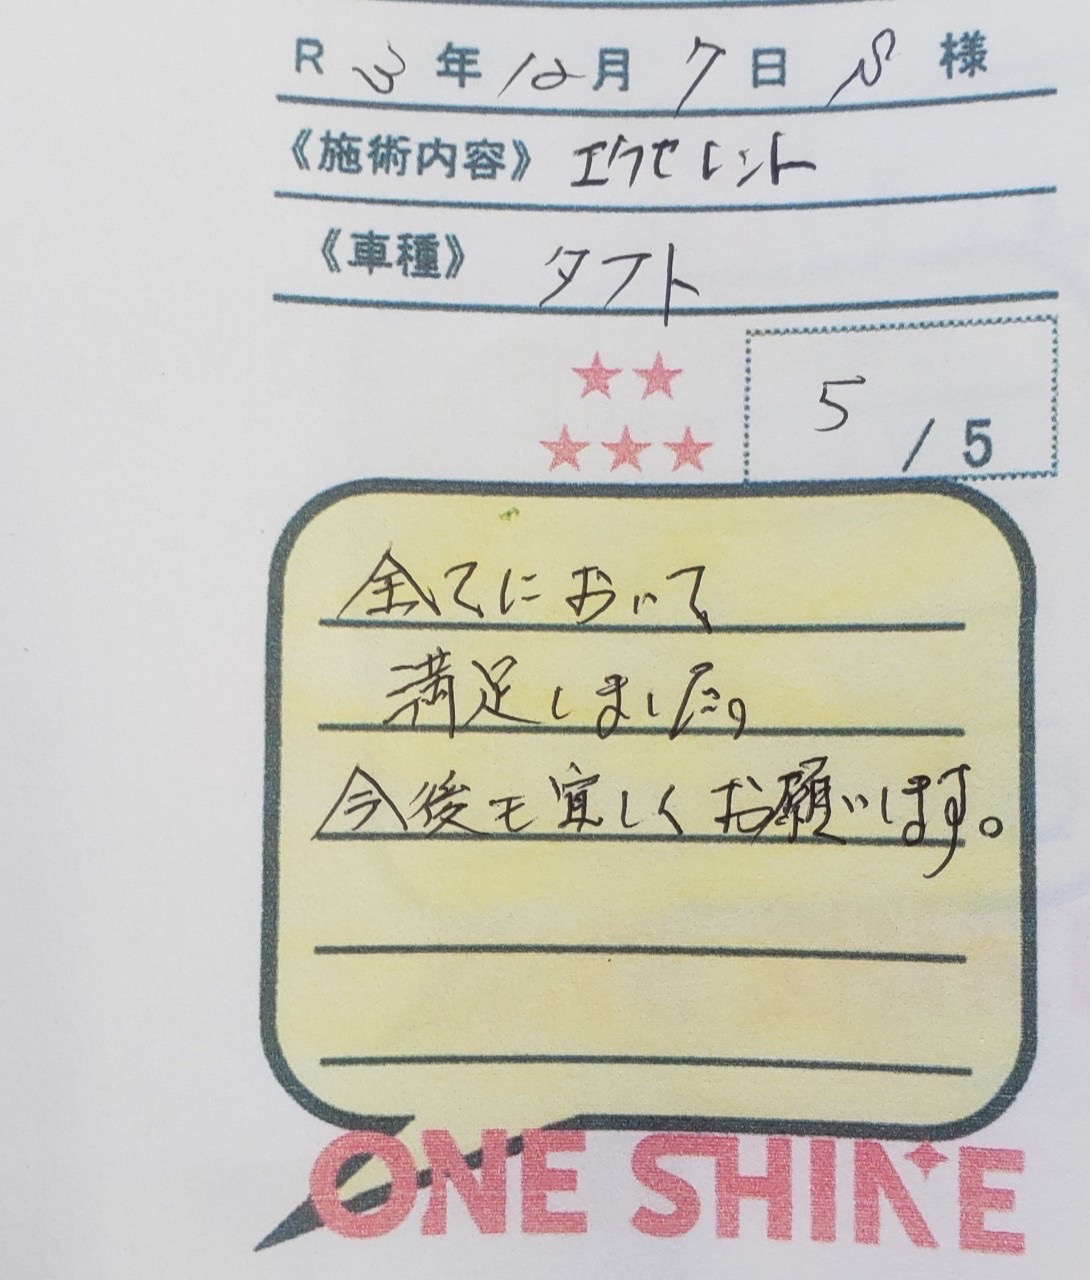 R 3年12月7日 S様
《施術内容》 エクセレント
《車種》 タフト
★★
★★★
5/5
全てにおいて
満足しました。
今後も宜しくお願いします。
ONE SHINE